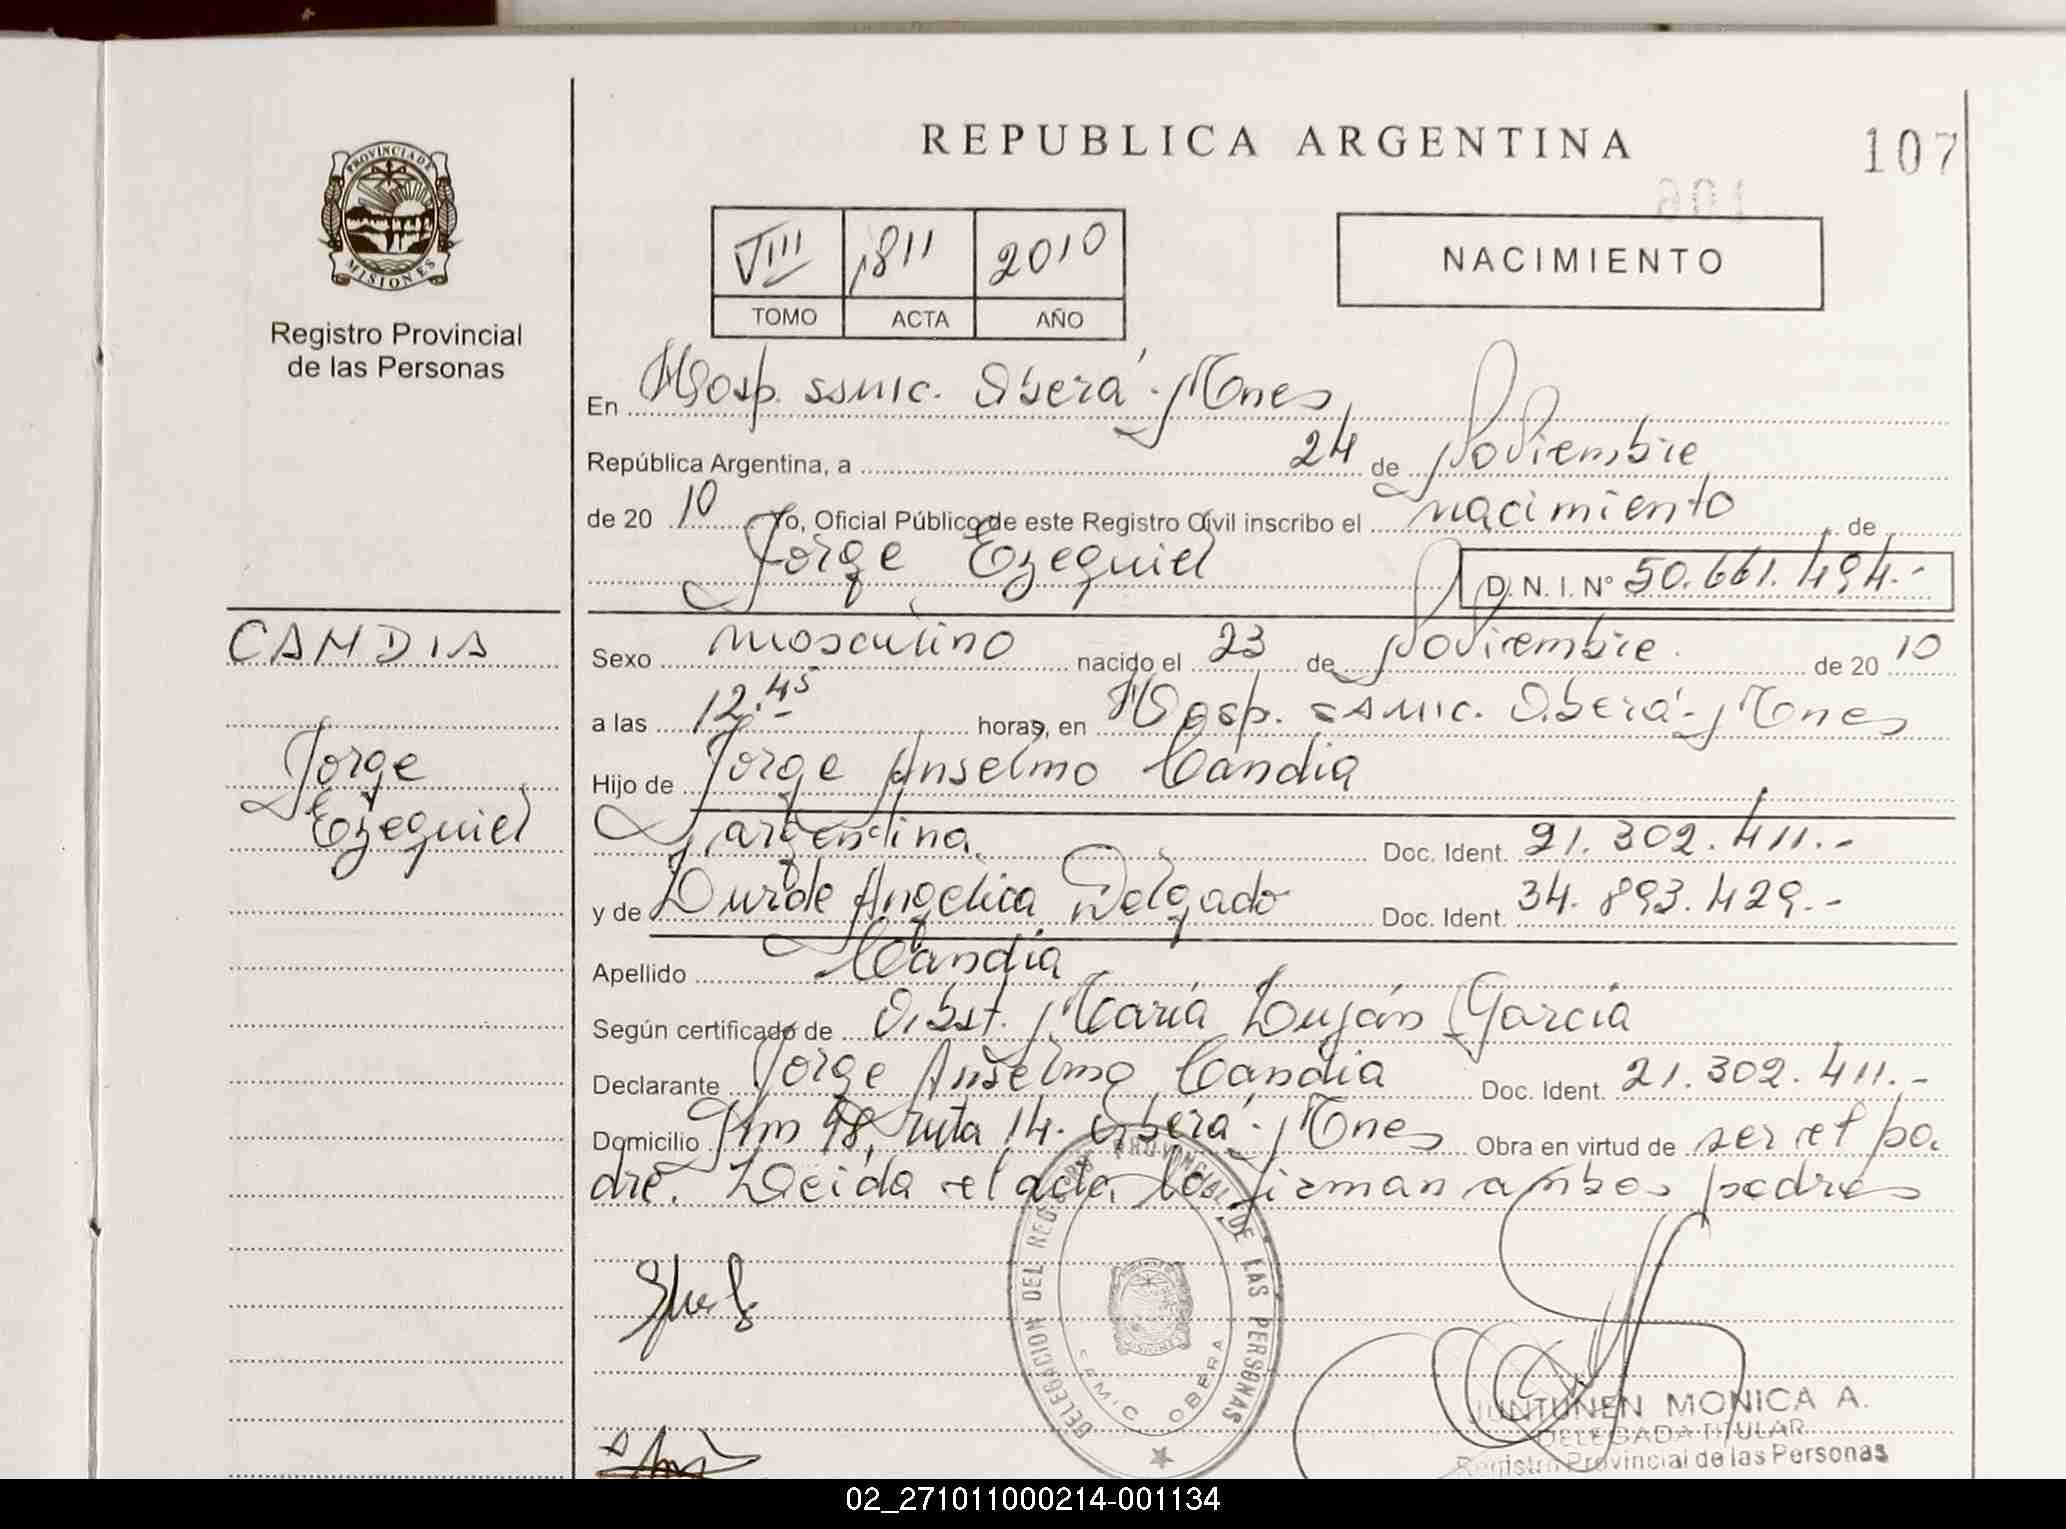 REPUBLICA ARGENTINA
107
PROVINCIA DE
MISIONES
Registro Provincial
de las Personas
VIII 1811 2010
TOMO ACTA AÑO
NACIMIENTO
En Hosp. SAMIC. Oberá - Mnes
República Argentina, a 24 de Noviembre
de 20 10 Yo, Oficial Público de este Registro Civil inscribo el nacimiento de
Jorge Ezequiel
D. N. I. Nº 50.661.494.-
CANDIA
Jorge
Ezequiel
Sexo masculino nacido el 23 de Noviembre. de 20 10
a las 12.45 horas, en Hosp. SAMIC. Oberá - Mnes
Hijo de Jorge Anselmo Candia
argentina. Doc. Ident. 21.302.411.-
y de Lurde Angelica Delgado Doc. Ident. 34.893.429.-
Apellido Candia
Según certificado de Obst. María Luján García
Declarante Jorge Anselmo Candia Doc. Ident. 21.302.411.-
Domicilio Km 98, ruta 14. Oberá - Mnes Obra en virtud de ser el pa-
dre. Leida el acta, la firman ambos padres
DELEGACION DEL REGISTRO PROVINCIAL DE LAS PERSONAS
MISIONES
OBERA
JUNTUNEN MONICA A.
DELEGADA TITULAR
Registro Provincial de las Personas
02_271011000214-001134